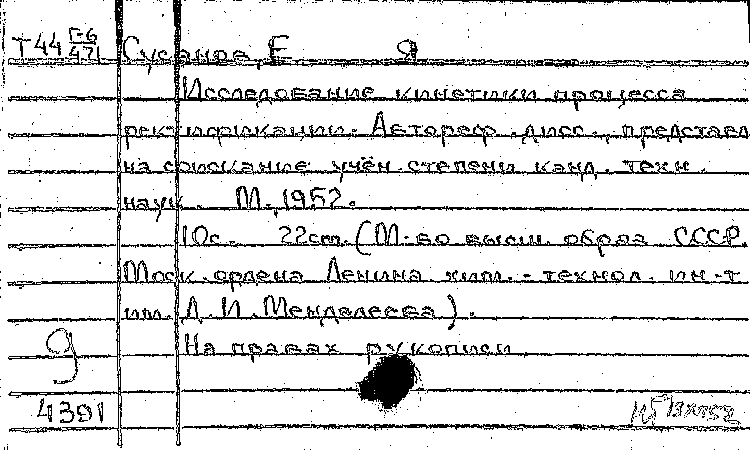 Т44 Г-6/471 Сусанов, Е Я
Исследование кинетики процесса
ректификации. Автореф. дисс., представл
на соискание учён. степени канд. техн.
наук. М., 1952.
10с. 22cm. (М-во высш. образ СССР.
Моск. ордена Ленина хим.-технол. ин-т
им. Д. И. Менделеева).
На правах рукописи
д
4391